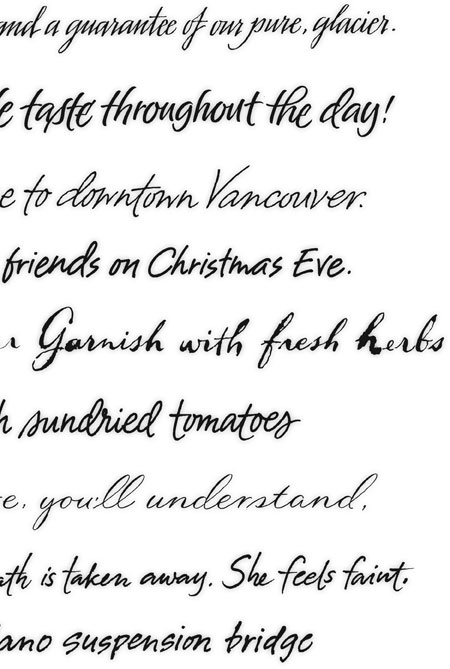 and a guarantee of our pure, glacier.
taste throughout the day!
to downtown Vancouver.
friends on Christmas Eve.
Garnish with fresh herbs
sundried tomatoes
you'll understand,
is taken away. She feels faint.
suspension bridge